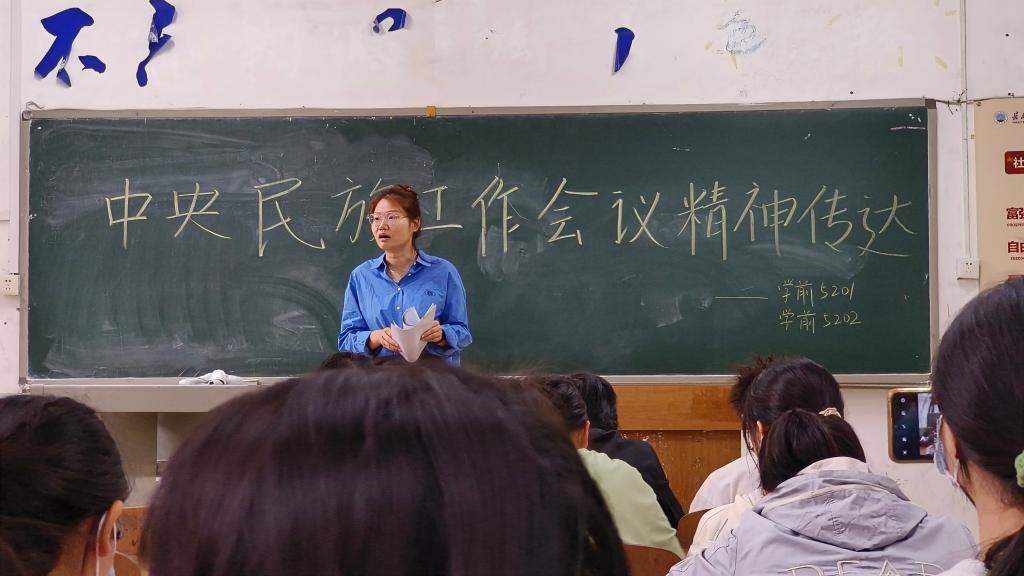 中央民族工作会议精神传达
—— 学前5201
学前5202
社
富强
自由